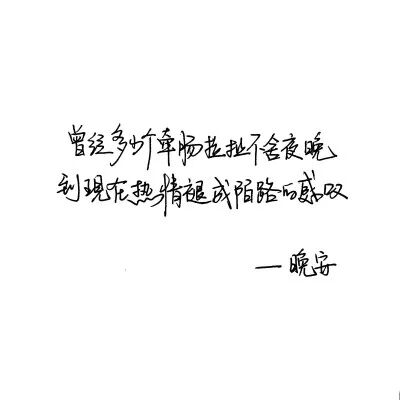 曾经多少个牵肠拉扯不舍夜晚
到现在热情褪成陌路的感叹
——晚安